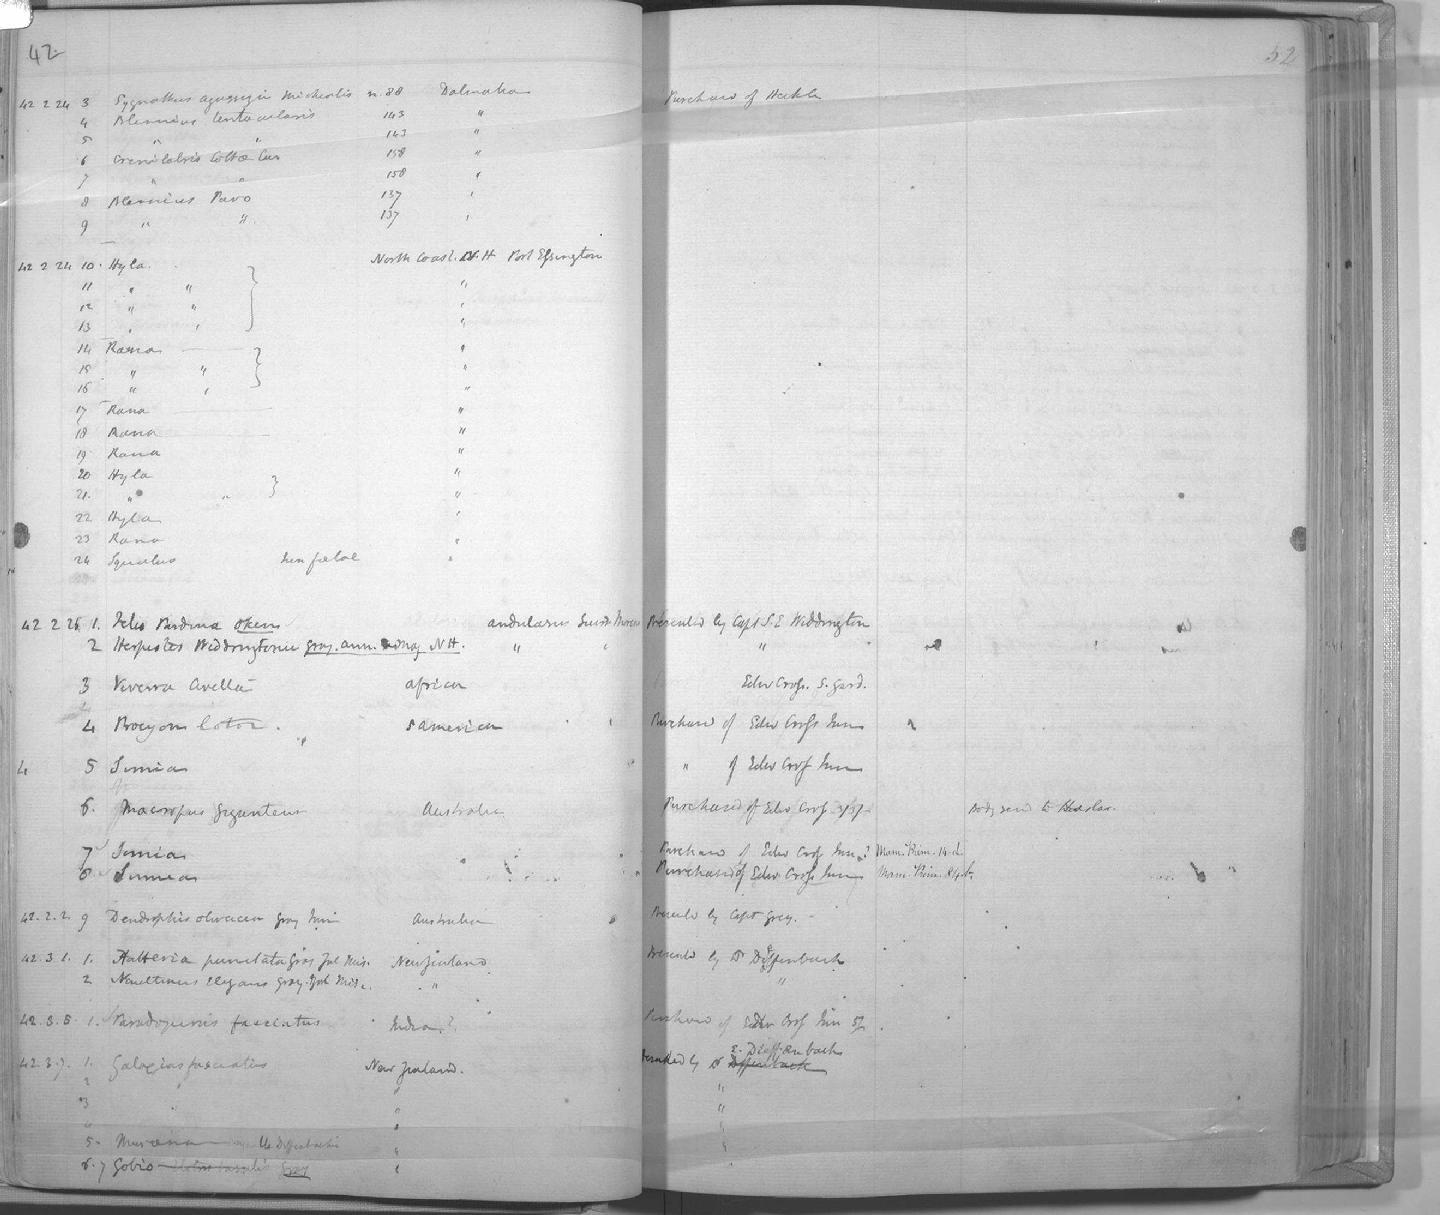 42
52
42 2 24 3 n. 88 Dalmatia Purchased of Heckle
4 Blennius tentacularis 143 "
5 " " 143 "
6 Crenilabris Cottae 158 "
7 " " 158 "
8 Blennius Pavo 137 "
9 " " 137 "
42 2 24 10. Hyla. North Coast. N. H Port Essington
11 " " "
12 " " "
13 " " "
14 Rana "
15 " " "
16 " " "
17 Rana "
18 Rana "
19 Rana "
20 Hyla "
21. " " "
22 Hyla "
23 Rana "
24 Squalus "
42 2 26 1. Felis Pardina Okens Presented by Capt S. E Widdrington
2 Herpestes Widdringtonii gray. ann. & Mag N H. " " "
3 Viverra Civetta African Edw Cross. S. Gard.
4 Procyon lotor. S America Purchased of Edw Cross Jun
4 5 Simia " of Edw Cross Jun
6. Macropus giganteus Australia Purchased of Edw Cross Body send to Haslar.
7 Simia Purchased of Edw Cross Jun Mam. Prim. 14.
8 Simia Purchased of Edw Cross Jun Mam. Prim.
42.2.2. 9 Dendrophis olivacea Gray Australia Presented by Capt Grey.
42.3.1. 1. Hatteria punctata Gray Zool Mis. New Zealand Presented by Dr Dieffenbach
2 Naultinus elegans Gray. Zool Mis. " "
42.3.5 1. Paradoxurus fasciatus India? Purchased of Edw Cross Jun
42.3.7. 1. Galaxias fasciatus New Zealand. Presented by Dr E. Dieffenbach
2 " "
3 " "
4 " "
5. Muraena Dieffenbachii " "
6. 7 Gobio Gray "